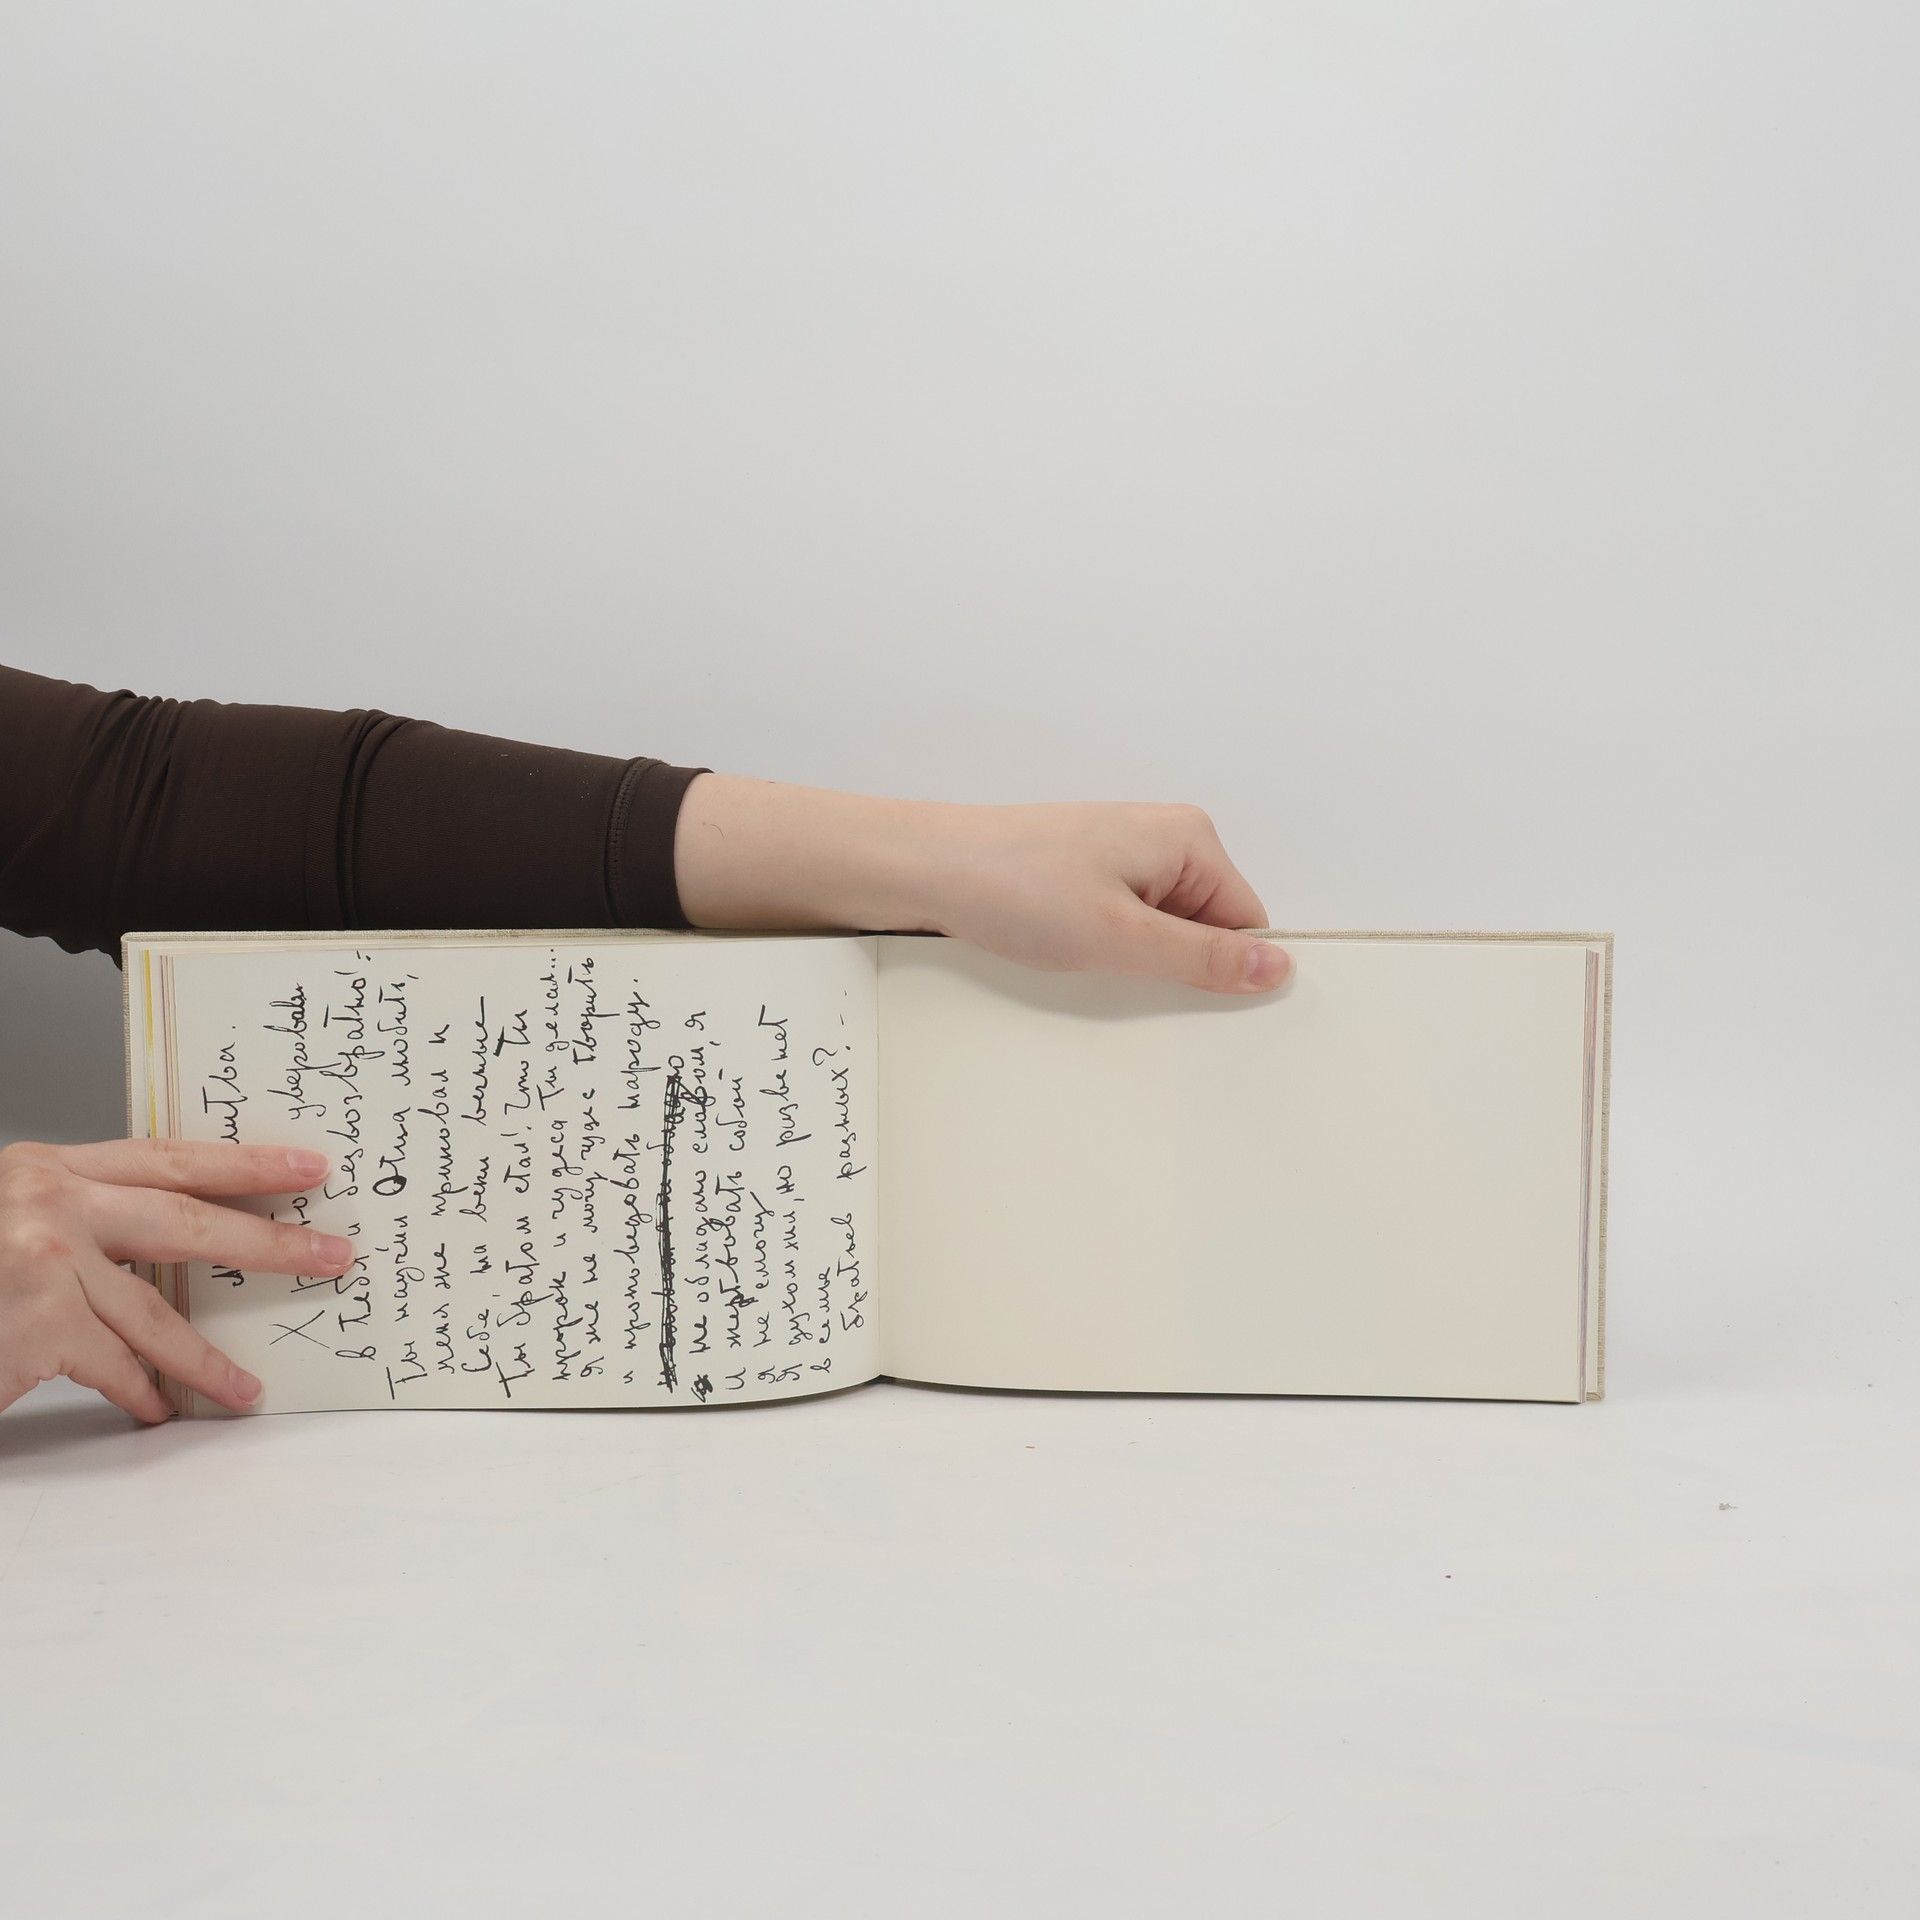 Молитва.
Христо уверовал
в Тебя и безвозвратно!:
Ты научил Отца любить,
меня же приковал к
Себе, на веки вечные
Ты братом стал! Что Ты
пророк и чудеса Ты делал...
Я же не могу чудес творить
и проповедовать народу.
не обладаю словом, я
И жертвовать собой
я не смогу
Я духом хил, но разве нет
в семье
братьев разных?...